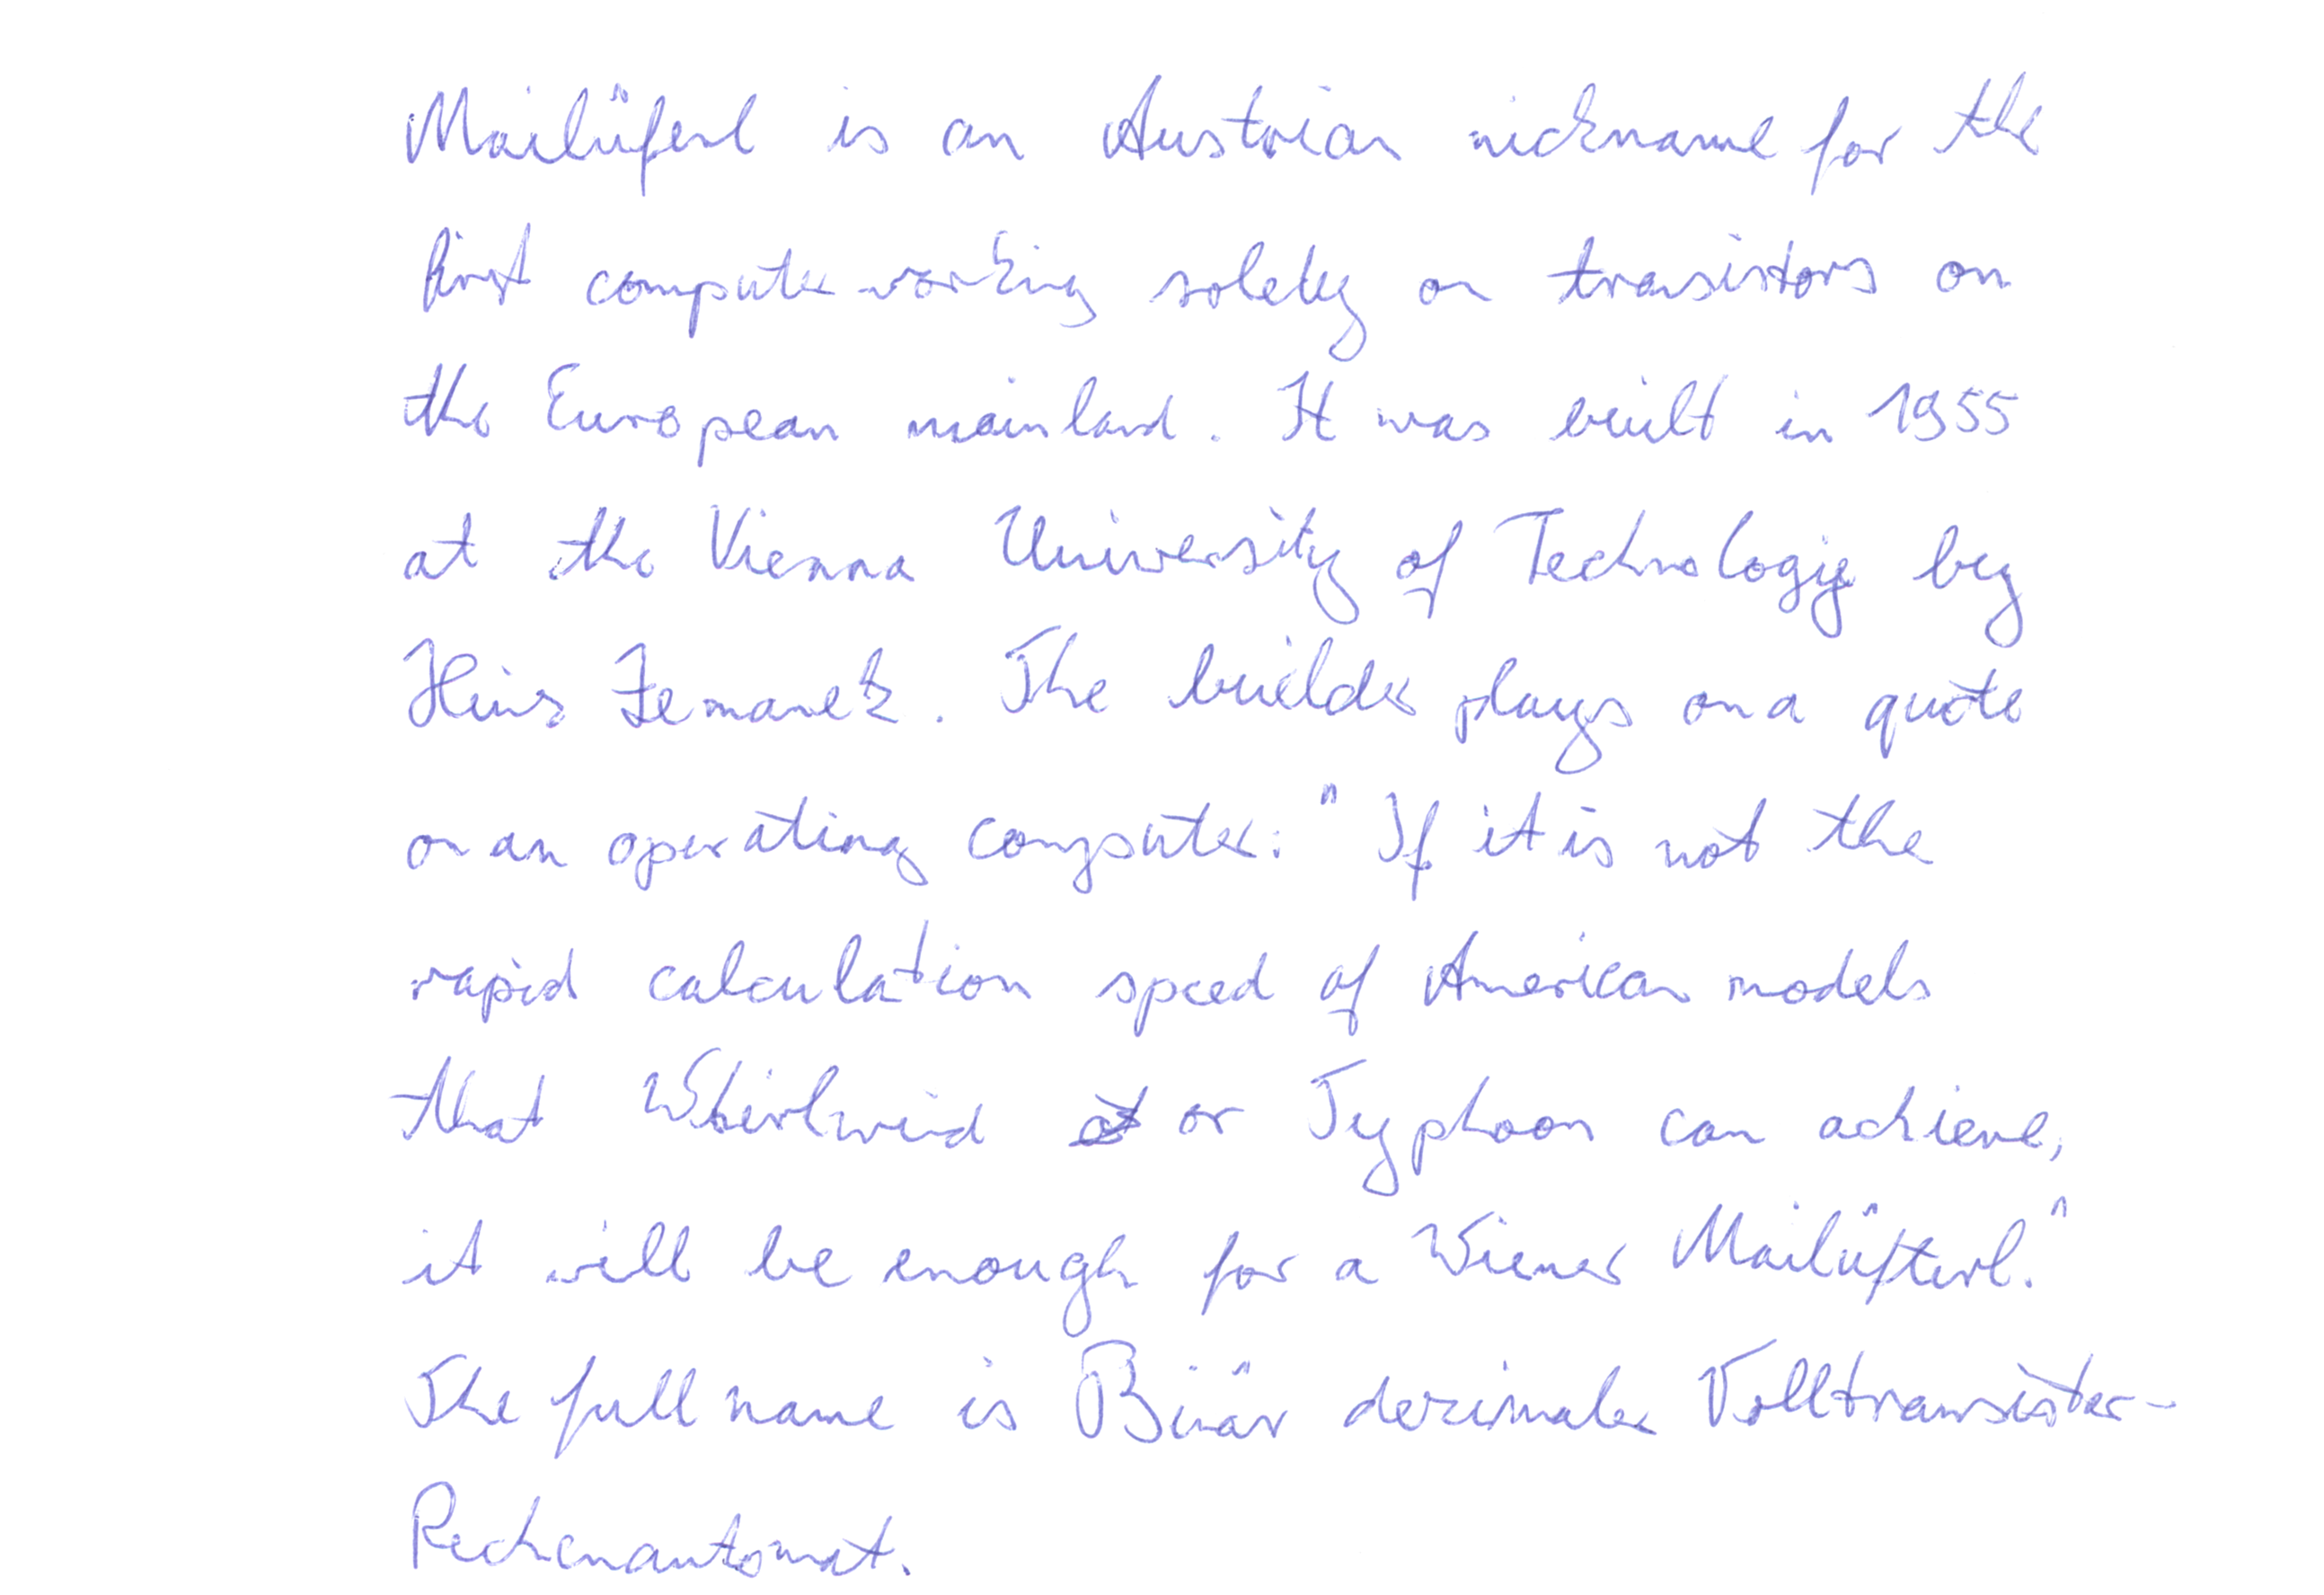 Mailüferl is an Austrian nickname for the
first computer working solely on transistors on
the European mainland. It was built in 1955
at the Vienna University of Technology by
Heinz Zemanek. The builder plays on a quote
on an operating computer: "If it is not the
rapid calculation speed of American models
that Whirlwind or Typhoon can achieve,
it will be enough for a Wiener Mailüfterl."
The full name is Binär dezimaler Volltransistor-
Rechenautomat.